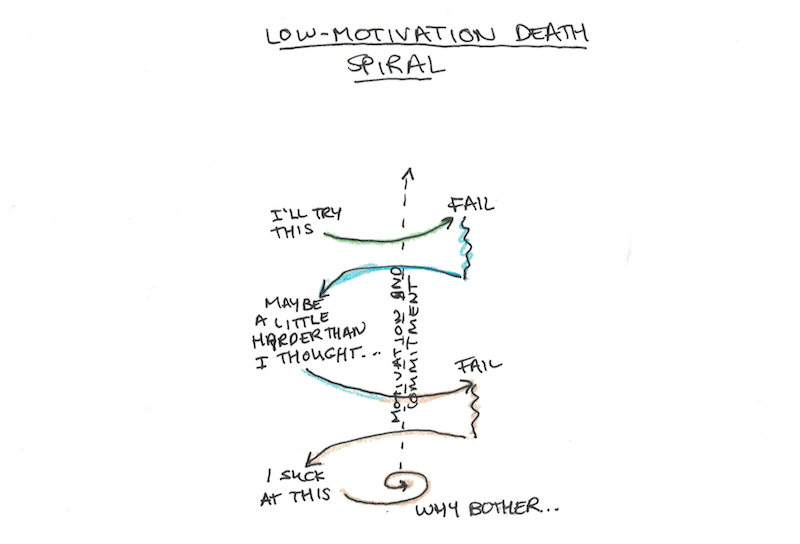 LOW-MOTIVATION DEATH
SPIRAL
I'LL TRY
THIS
FAIL
MOTIVATION AND
COMMITMENT
MAYBE
A LITTLE
HARDER THAN
I THOUGHT...
FAIL
I SUCK
AT THIS
WHY BOTHER...